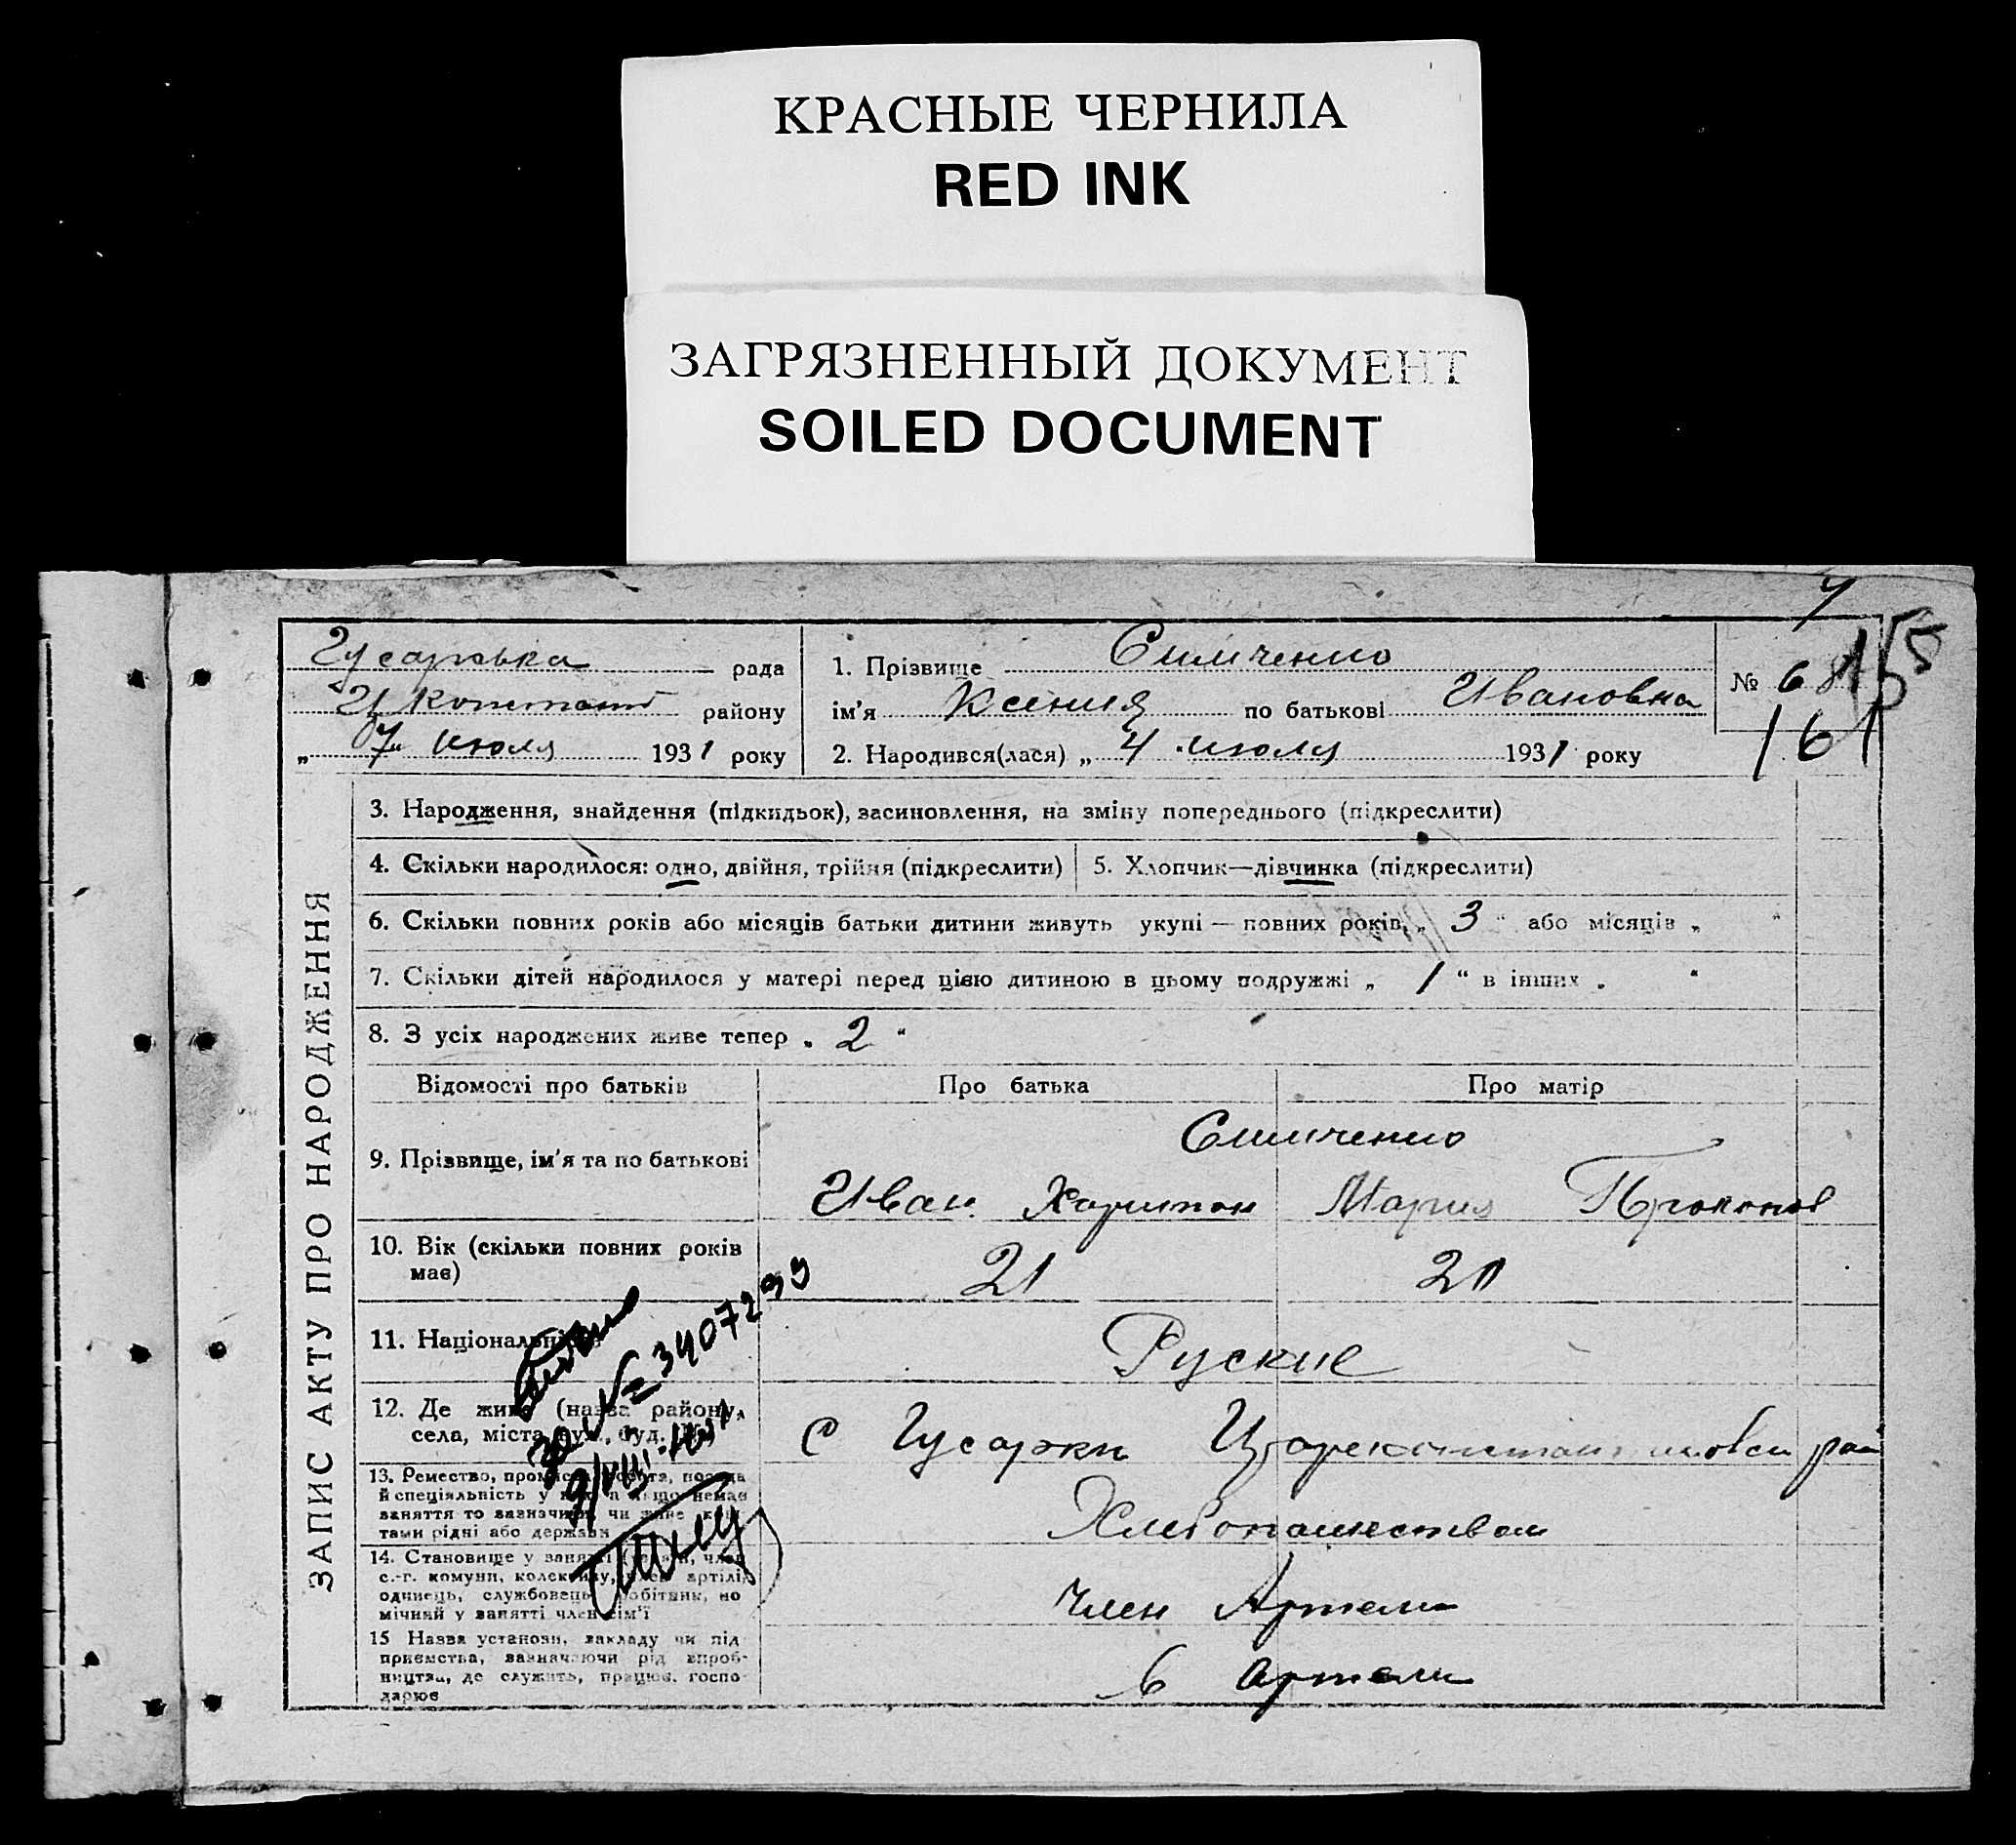 КРАСНЫЕ ЧЕРНИЛА
RED INK
ЗАГРЯЗНЕННЫЙ ДОКУМЕНТ
SOILED DOCUMENT
7
155
Гусарська рада
району
„7“ июля 1931 року
1. Прізвище Симченко
ім'я Ксения по батькові Ивановна
2. Народився(лася) „ 4 июля 1931 року
№ 68
161
ЗАПИС АКТУ ПРО НАРОДЖЕННЯ
3. Народження, знайдення (підкидьок), засиновлення, на зміну попереднього (підкреслити)
4. Скільки народилося: одно, двійня, трійня (підкреслити)
5. Хлопчик—дівчинка (підкреслити)
6. Скільки повних років або місяців батьки дитини живуть укупі — повних років, „ 3 “ або місяців „ “
7. Скільки дітей народилося у матері перед цією дитиною в цьому подружжі „ 1 “ в інших „ “
8. З усіх народжених живе тепер „ 2 “
Відомості про батьків Про батька Про матір
9. Прізвище, ім'я та по батькові
Симченко
Иван Харитон Мария Прокопов
10. Вік (скільки повних років має)
21 20
11. Національність
Руские
12. Де живе (назва району, села, міста, вул., буд.
с Гусарки рай
13. Ремество, промисел, робота, посада
й спеціяльність у а якщо немає
заняття то зазначити, чи живе кош-
тами рідні або держави
Хлебопашеством
14. Становище у занятті член
с.-г. комуни, колективу, член артілі,
одинець, службовець, робітник, по
мічний у занятті член сім'ї
Член Артели
15 Назва установи, закладу чи під
приємства, зазначаючи рід вироб-
ництва, де служить, працює, госпо-
дарює
в артели
за № 3407299
9/VIII